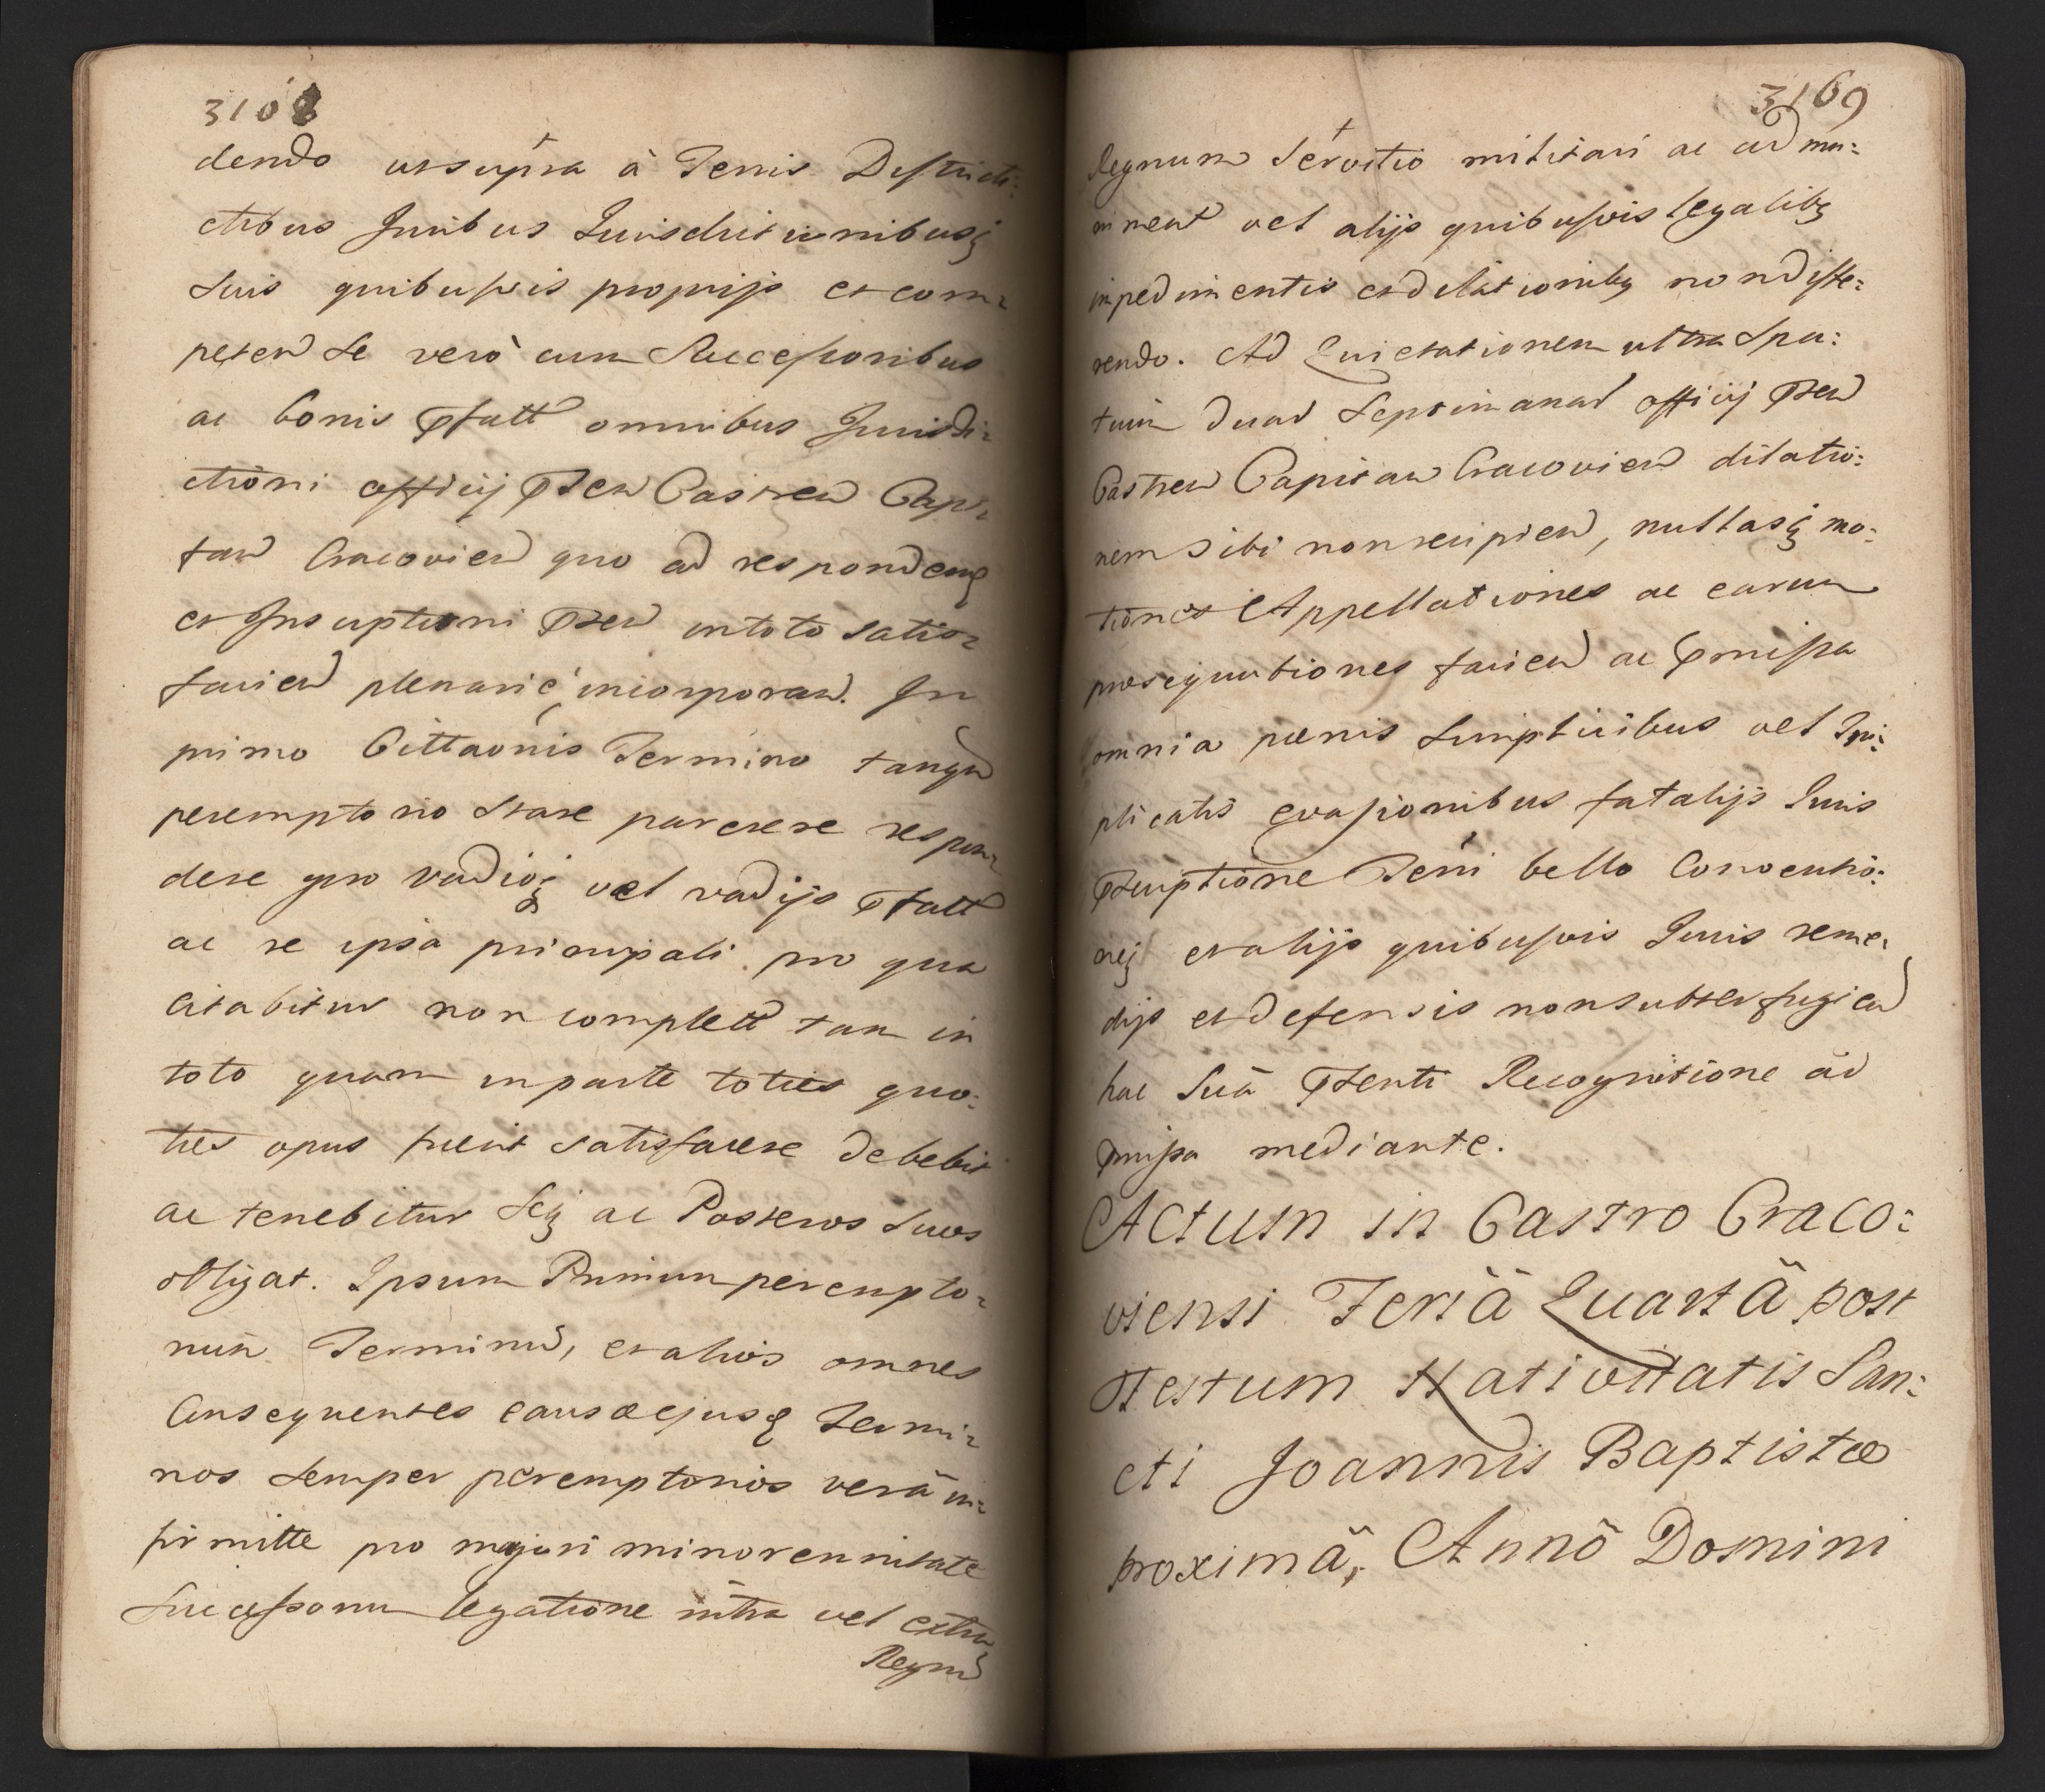 3108
dendo ut supra à Terris Districti-
ctibus Juribus Jurisdictionibusq
suis quibusvis propriis et com-
peten se verò cum Successoribus
ac bonis pfatt omnibus Jurisdi-
ctioni officij pnten Castren Capi-
tan Cracovien quo ad respondenq
et Inscriptioni pnten in toto satis-
facien plenarie, incorporan. In
primo Cittaõnis Termino tanqu
peremptorio stare parere respon-
dere pro vadioq vel vadijs pfatt
ac re ipsa principali pro qua
citabitur non complett tam in
toto quam in parte toties quo:
ties opus fuerit satisfacere debebit
ac tenebitur Seq ac Posteros suos
obligat. Ipsum Primum perempto-
rium Terminu, et alios omnes
Consequentes causæ ejusq Termi-
nos semper peremptorios verâ in-
firmitte pro majori minorennitate
Successorum legatione intra vel extra
Regnu
3169
Regnum servitio militari ac ad mu:
niment vel alijs quibusvis legalibq
impedimentis et dilationibq non diffe:
rendo. Ad Quietationem ultra Spa:
tium duar Septimanar officij pnten
Castren Capitan Cracovien dilatio:
nem sibi non recipien, nullasq mo:
tiones Appellationes ac earum
prosequutiones facien ac pmissa
omnia pœnis simplicibus vel Tri:
plicatis evasionibus fatalijs Juris
pscriptione Terri bello Conventio:
neq et alijs quibusvis Juris reme:
dijs et defensis non subterfugien
hac Suâ pntenti Recognitione ad
pmissa mediante.
Actum in Castro Craco:
viensi Feriâ Quartâ post
Festum Nativitatis San:
cti Joannis Baptistæ
proximâ, Annô Domini